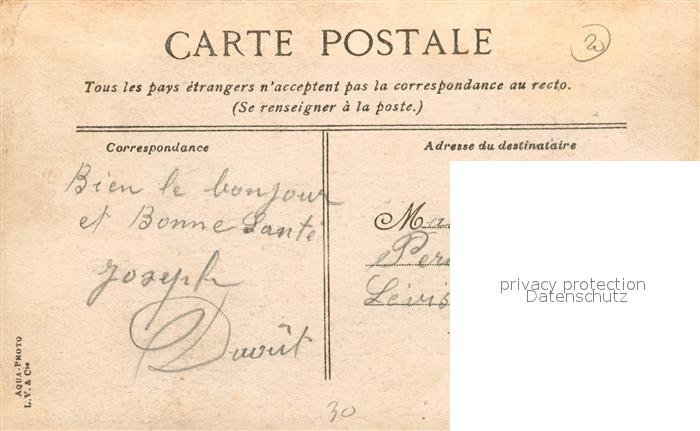 CARTE POSTALE
Tous les pays étrangers n'acceptent pas la correspondance au recto.
(Se renseigner à la poste.)
Correspondance
Bien le bonjour
et Bonne Santé
Joseph
Davoût
Adresse du destinataire
privacy protection
Datenschutz
AQUA-PHOTO
L. V. & Cie
30